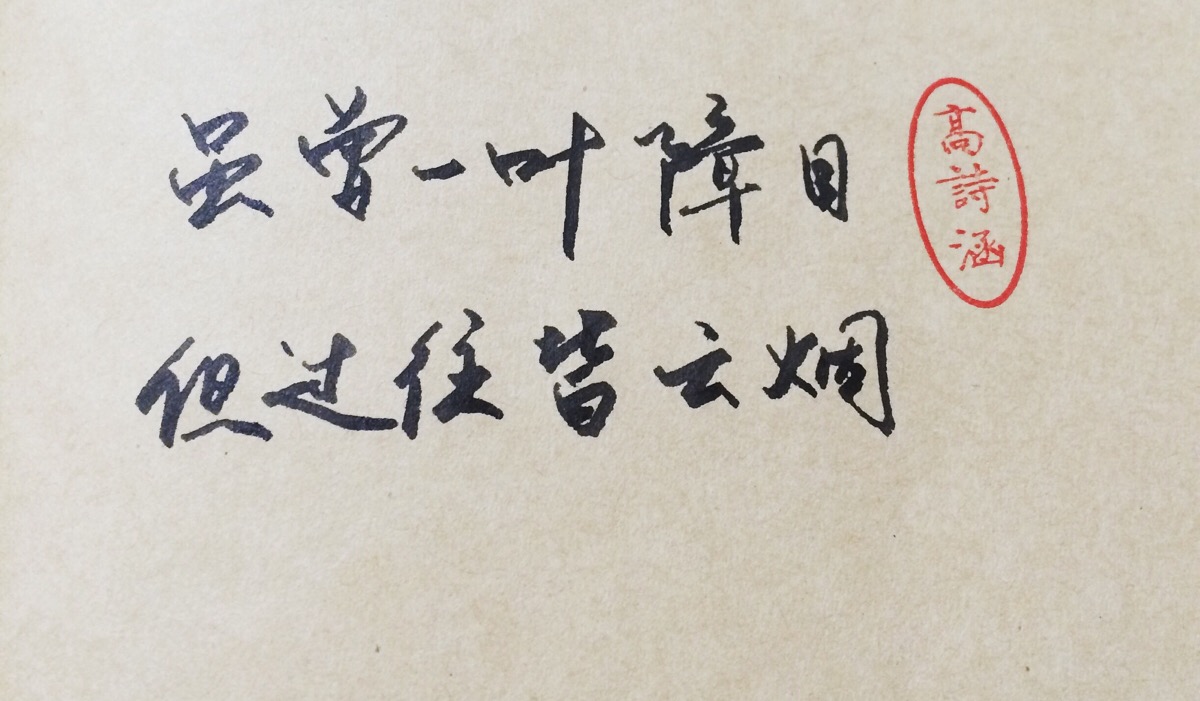 虽曾一叶障目
但过往皆云烟
高詩涵